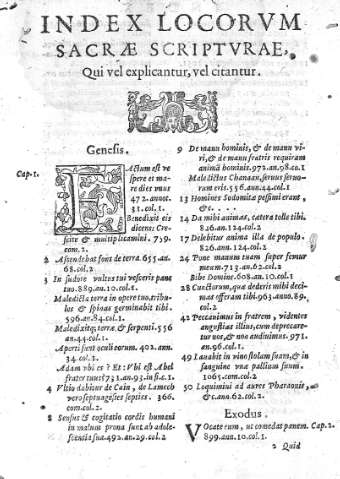 INDEX LOCORVM
SACRÆ SCRIPTVRAE,
Qui vel explicantur, vel citantur.
Genesis.
Cap. 1.
FActum est ve
spere et ma
ne dies vnus
472. annot.
31. col. 1.
Benedixit eis
dicens: Cre-
scite & multiplicamini. 759.
com. 2.
2 Ascendebat fons de terra. 655 an.
68. col. 2
3 In sudore vultus tui vesceris pane
tuo. 889. an. 10. col. 1.
Maledicta terra in opere tuo, tribu-
los & spinas germinabit tibi.
596. an. 84. col. 1.
Maledixitq; terræ & serpenti. 556
an. 44. col. 1.
Aperti sunt oculi eorum. 402. ann.
34. col. 1.
Adam vbi es? Et: Vbi est Abel
frater tuus? 731. an. 93. in fi. c. 1.
4 Vltio dabitur de Cain, de Lamech
vero septuagies septies. 366.
com. col. 2.
8 Sensus & cogitatio cordis humani
in malum prona sunt ab adole-
scentia sua. 492. an. 29. col. 2
9 De manu hominis, & de manu vi-
ri, & de manu fratris requiram
animã hominis. 972. an. 98. co. 1
Maledictus Chanaan, seruus seruo-
rum erit. 556. ann. 44. col. 1
13 Homines Sodomitæ pessimi erant,
&c.
14 Da mihi animas, cætera tolle tibi.
826. an. 124. col. 2
17 Delebitur anima illa de populo.
826. ann. 124. col. 2
24 Pone manum tuam super femur
meum. 713. an. 62. col. 2
Bibe Domine. 608. an. 10. col. 1
28 Cunctorum, quæ dederis mihi deci-
mas offeram tibi. 963. anno. 89.
col. 2
42 Peccauimus in fratrem, videntes
angustias illius, cum deprecare-
tur nos, & non audiuimus. 971.
an. 96. col. 1
49 Lauabit in vino stolam suam, & in
sanguine vuæ pallium suum.
1065. com. col. 2
50 Loquimini ad aures Pharaonis,
&c. ann. 62. col. 2.
Exodus.
VOcate eum, vt comedat panem. Cap. 2.
899. ann. 10. col. 1.
2 Quid